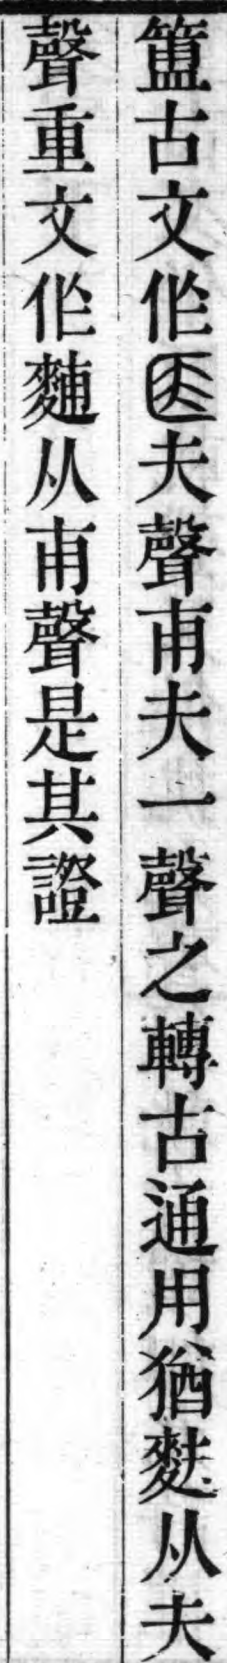 簠古文作𠥑夫聲甫夫一聲之轉古通用猶麩从夫
聲重文作䴸从甫聲是其證